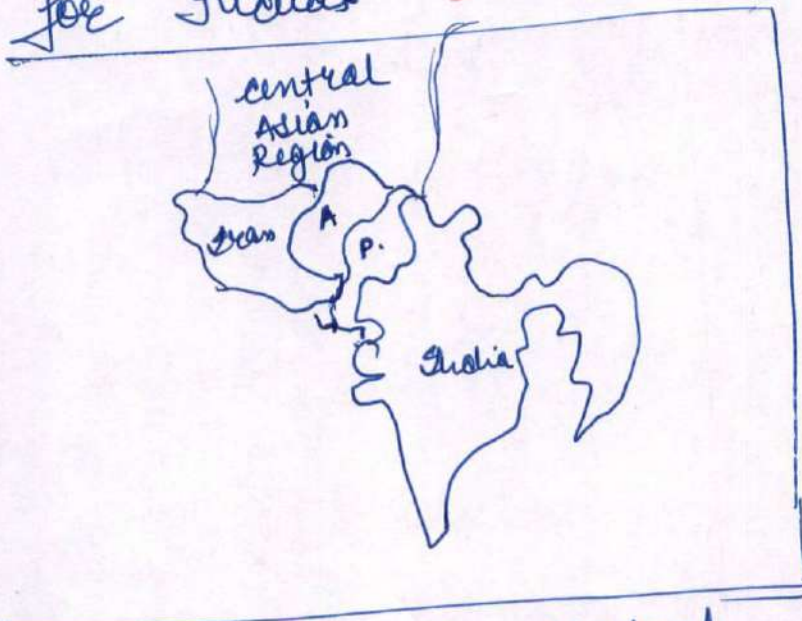 for India
Central
Asian
Region
Iran
A
P.
India